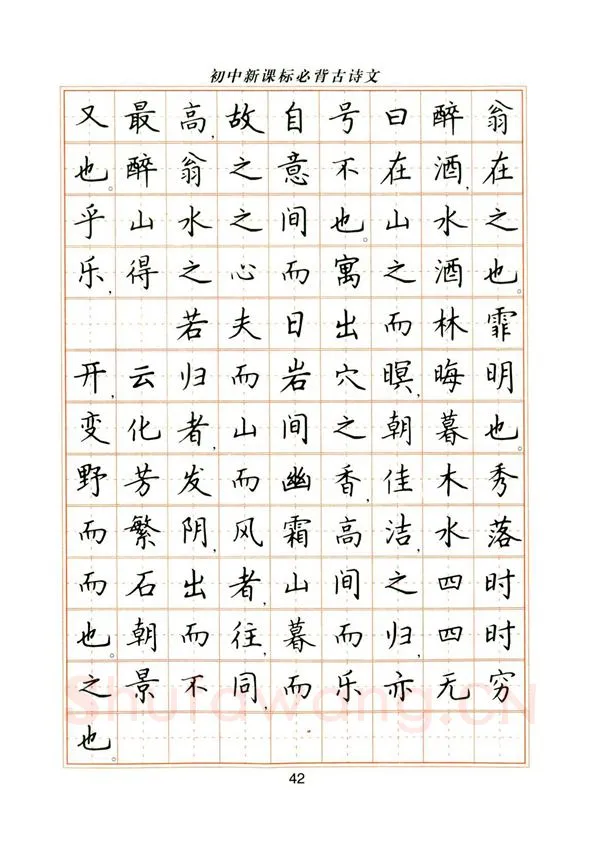 初中新课标必背古诗文
又最高,故自号曰醉翁
也。醉翁之意不在酒,在
乎山水之间也。山水之
乐,得之心而寓之酒也。
若夫日出而林霏
开,云归而岩穴暝,晦明
变化者,山间之朝暮也。
野芳发而幽香,佳木秀
而繁阴,风霜高洁,水落
而石出者,山间之四时
也。朝而往,暮而归,四时
之景不同,而乐亦无穷
也。
Shufawang.CN
42